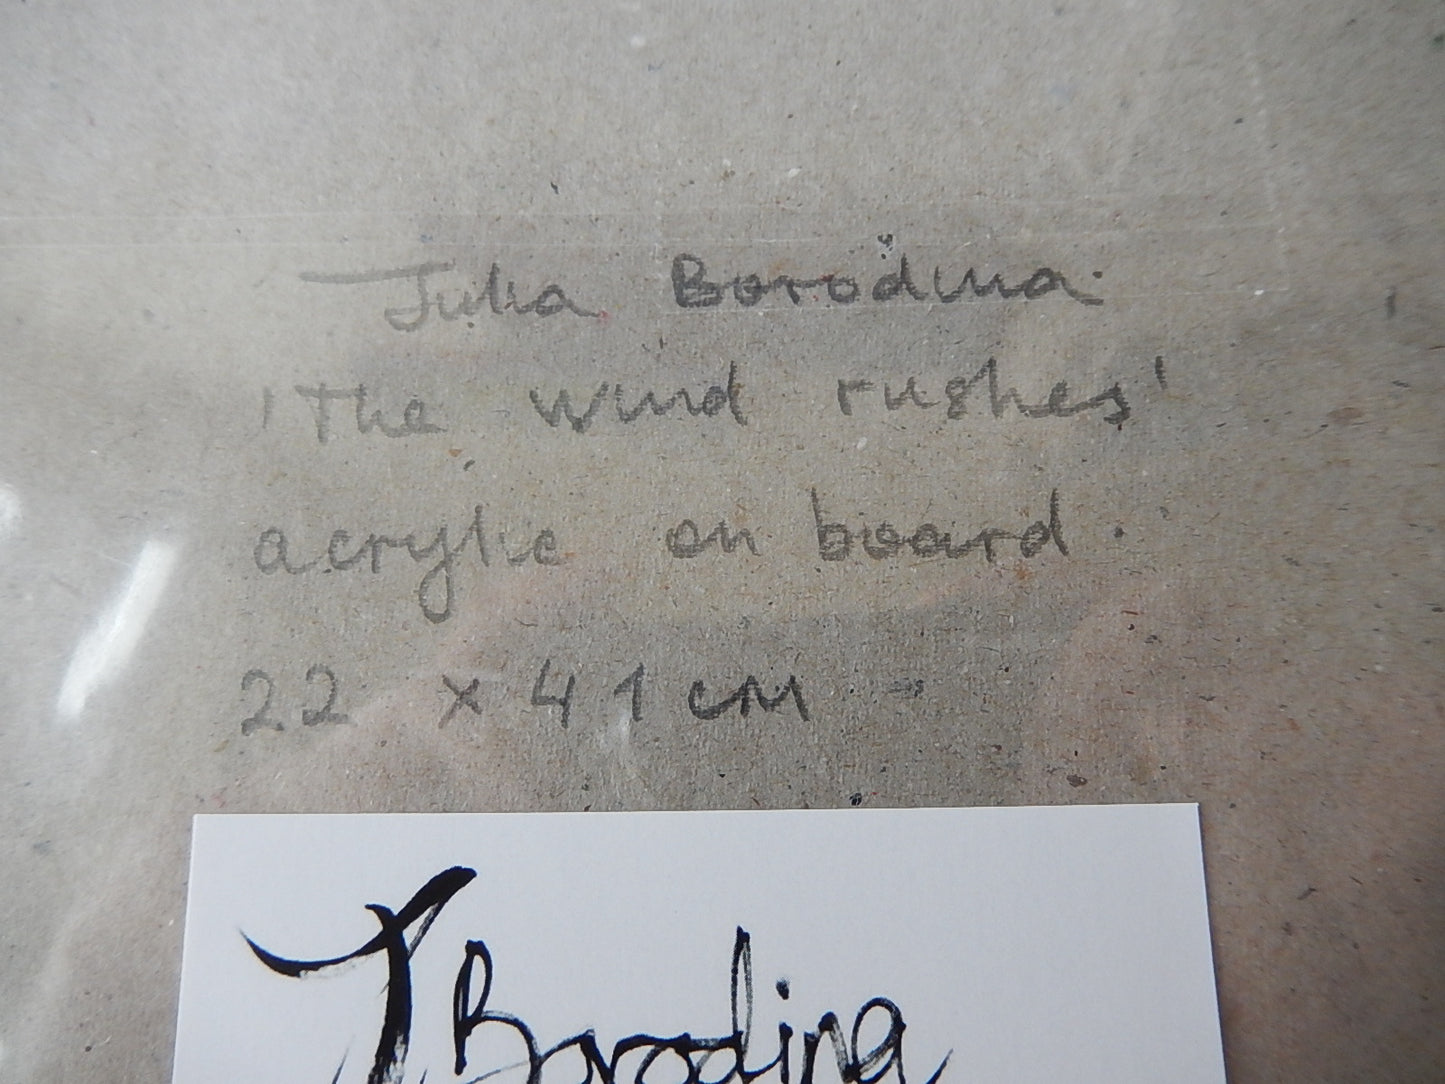 Julia Borodina.
'The wind rushes'
acrylic on board.
22 x 41 cm
J Borodina